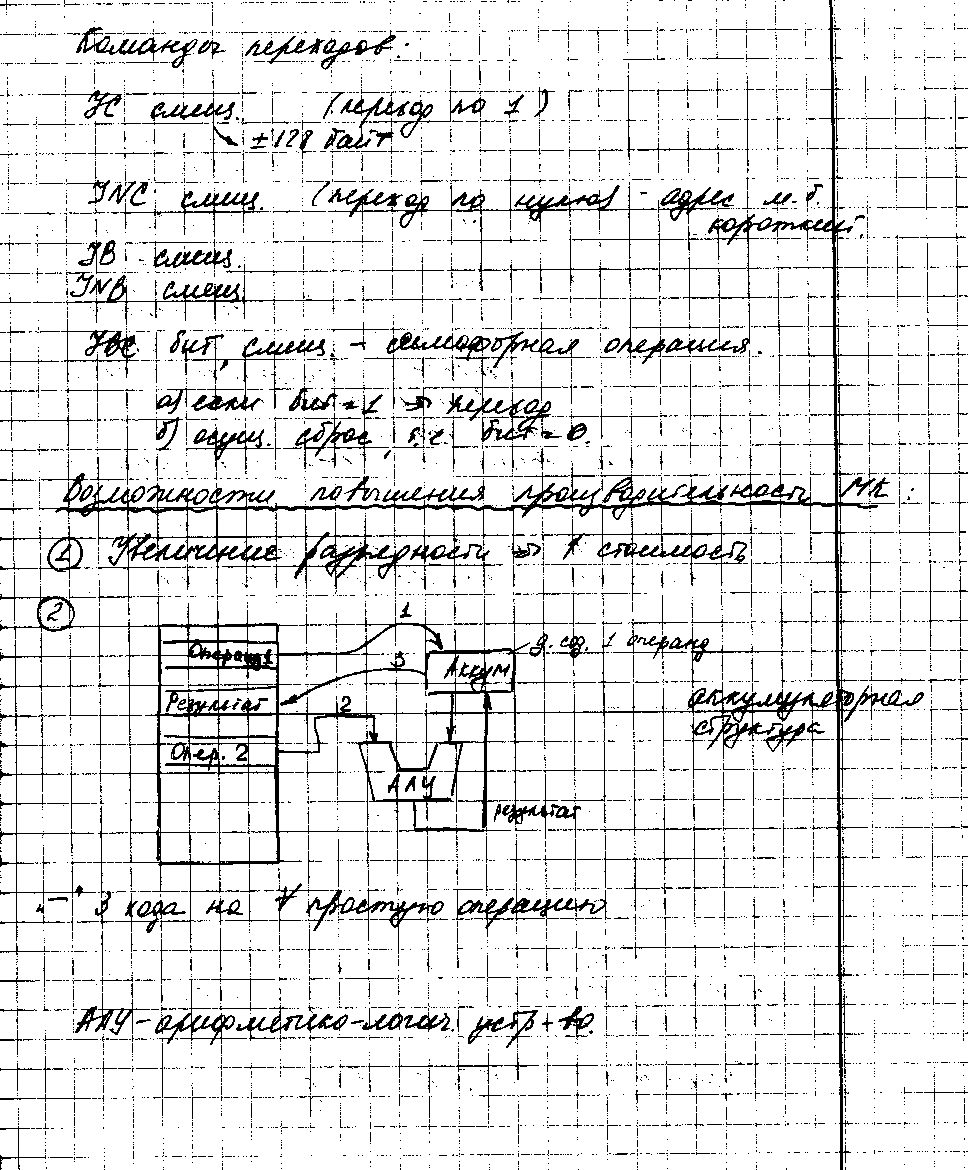 Команды переходов:
JC смещ. (переход по 1)
±128 байт
JNC смещ. (переход по нулю) - адрес м.б.
короткий.
JB смещ.
JNB смещ.
JBC бит, смещ. - семафорная операция.
а) если бит = 1 ⇒ переход
б) осущ. сброс, т.е. бит = 0.
Возможности повышения производительности МК:
① Увеличение разрядности ⇒ ↑ стоимость
②
1
Операнд 1
3
Аккум
д. сод. 1 операнд
Результат
2
аккумуляторная
структура
Опер. 2
АЛУ
результат
"—" 3 хода на ∀ простую операцию
АЛУ - арифметико-логич. устр-во.